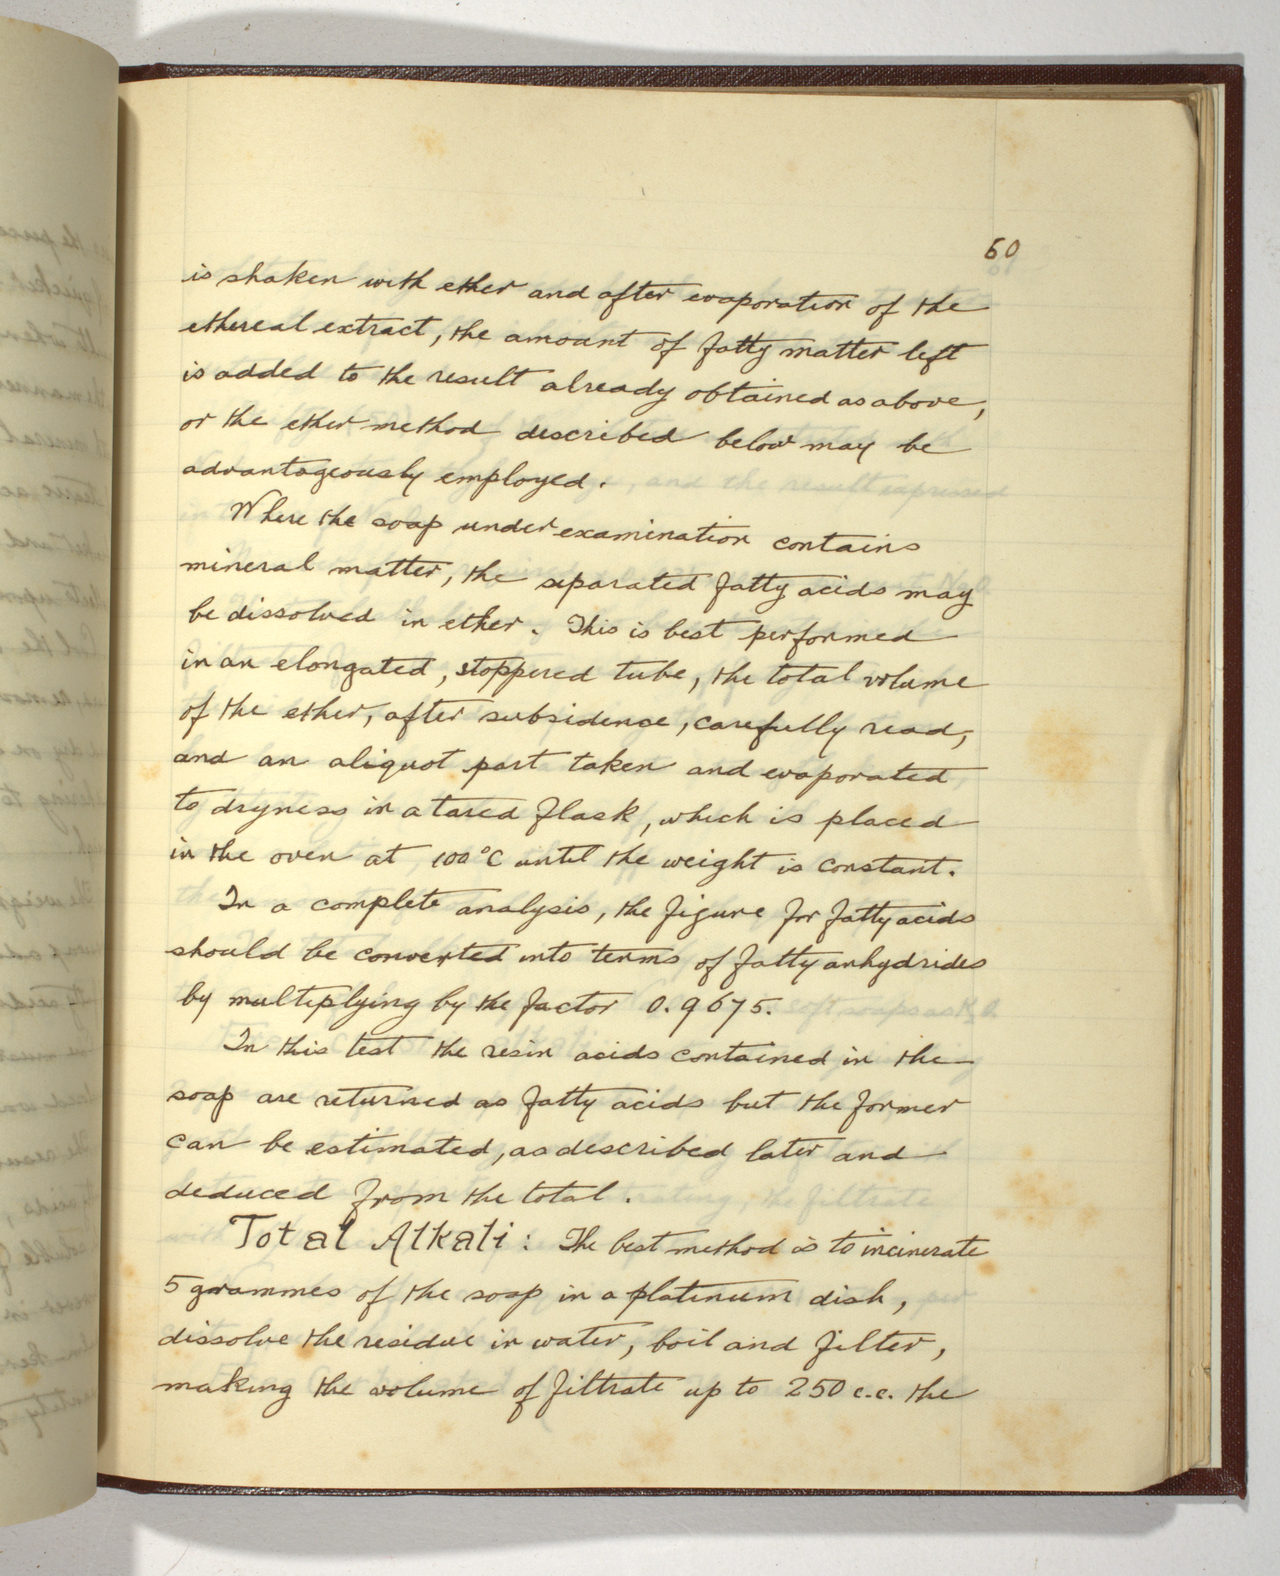 60
is shaken with ether and after evaporation of the
ethereal extract, the amount of fatty matter left
is added to the result already obtained as above,
or the ether method described below may be
advantageously employed.
Where the soap under examination contains
mineral matter, the separated fatty acids may
be dissolved in ether. This is best performed
in an elongated, stoppered tube, the total volume
of the ether, after subsidence, carefully read,
and an aliquot part taken and evaporated
to dryness in a tared flask, which is placed
in the oven at 100°C until the weight is constant.
In a complete analysis, the figure for fatty acids
should be converted into terms of fatty anhydrides
by multiplying by the factor 0.9675.
In this test the resin acids contained in the
soap are returned as fatty acids but the former
can be estimated, as described later and
deduced from the total.
Total Alkali: The best method is to incinerate
5 grammes of the soap in a platinum dish,
dissolve the residue in water, boil and filter,
making the volume of filtrate up to 250 c.c. the